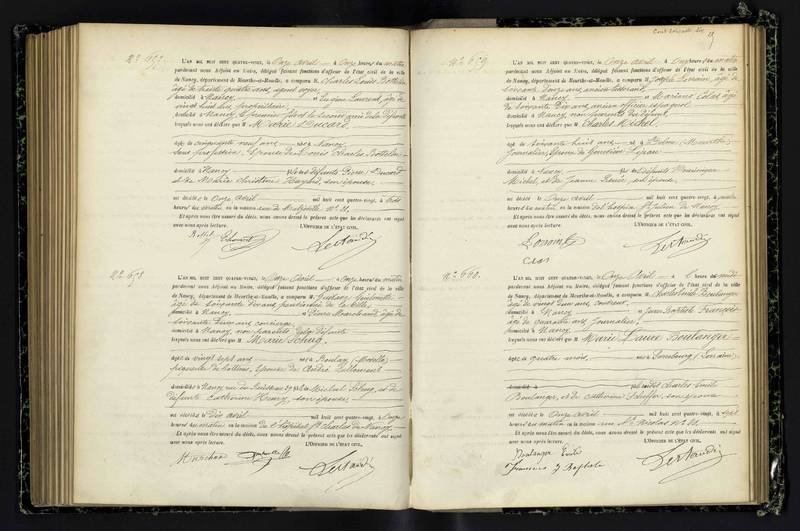 Nº 657.
L'an mil huit cent quatre-vingt, le Onze avril à Onze heures du matin
pardevant nous Adjoint au Maire, délégué faisant fonctions d'officier de l'état civil de la ville
de Nancy, département de Meurthe-et-Moselle, a comparu M. Charles Louis
âgé de trente quatre ans, agent voyer,
domicilié à Nancy et Eugène Laurent, âgé de
vingt huit ans, propriétaire
domicilié à Nancy, le premier fils et le second ami de la défunte
lesquels nous ont déclaré que M Marie Ducard
âgée de cinquante neuf ans née à Nancy
sans profession, épouse de Louis Charles
domiciliée à Nancy fille de défunts Pierre Ducard
et de Marie Christine son épouse
est décédée le Onze avril mil huit cent quatre-vingt, à trois
heures du matin en la maison rue de Malzéville Nº 21.
Et après nous être assuré du décès, nous avons dressé le présent acte que les déclarants ont signé
avec nous après lecture. L'Officier de l'état civil,
Nº 658
L'an mil huit cent quatre-vingt, le Onze avril à onze heures du matin
pardevant nous Adjoint au Maire, délégué faisant fonctions d'officier de l'état civil de la ville
de Nancy, département de Meurthe-et-Moselle, a comparu M. Gustave
âgé de soixante de la ville
domicilié à Nancy et Pierre Marchand âgé de
soixante deux ans concierge
domicilié à Nancy, non parents de la défunte
lesquels nous ont déclaré que M Marie Schug
âgée de vingt sept ans née à Boulay (Moselle)
piqueuse de bottines, épouse de André
domiciliée à Nancy rue du Ruisseau 29 fille de Michel Schug, et de
défunte Catherine Henry, son épouse
est décédée le Dix avril mil huit cent quatre-vingt, à onze
heures du matin en la maison de l'hôpital St Charles de Nancy
Et après nous être assuré du décès, nous avons dressé le présent acte que les déclarants ont signé
avec nous après lecture. L'Officier de l'état civil,
Marchand
Cent soixante six
Nº 659
L'an mil huit cent quatre-vingt, le Onze avril à Onze heures du matin
pardevant nous Adjoint au Maire, délégué faisant fonctions d'officier de l'état civil de la ville
de Nancy, département de Meurthe-et-Moselle, a comparu M. Joseph Lorrain, âgé de
soixante douze ans, ancien
domicilié à Nancy et Mariano Colas, âgé
de soixante dix ans, ancien officier espagnol
domicilié à Nancy, non parents du défunt,
lesquels nous ont déclaré que M Charles Michel
âgé de soixante huit ans né à (Meurthe)
Journalier, époux de Geneviève
domicilié à Nancy fils de défunts Dominique
Michel, et de Jeanne son épouse
est décédé le Onze avril mil huit cent quatre-vingt, à
heures du matin en la maison de l'hospice St Julien de Nancy
Et après nous être assuré du décès, nous avons dressé le présent acte que les déclarants ont signé
avec nous après lecture. L'Officier de l'état civil,
Lorrain
Nº 660.
L'an mil huit cent quatre-vingt, le Onze Avril à l'heure de midi
pardevant nous Adjoint au Maire, délégué faisant fonctions d'officier de l'état civil de la ville
de Nancy, département de Meurthe-et-Moselle, a comparu M. Charles Emile Boulanger
âgé de vingt deux ans, couvreur,
domicilié à Nancy et Jean Baptiste François
âgé de quarante ans, Journalier,
domicilié à Nancy
lesquels nous ont déclaré que M Marie Laure Boulanger
âgée de quatre mois, née à Sarrebourg (Lorraine)
fille de Charles Emile
Boulanger, et de Catherine son épouse
est décédée le Onze avril mil huit cent quatre-vingt, à sept
heures du matin en la maison rue St Nicolas Nº 81
Et après nous être assuré du décès, nous avons dressé le présent acte que les déclarants ont signé
avec nous après lecture. L'Officier de l'état civil,
Boulanger Emile
François J Baptiste